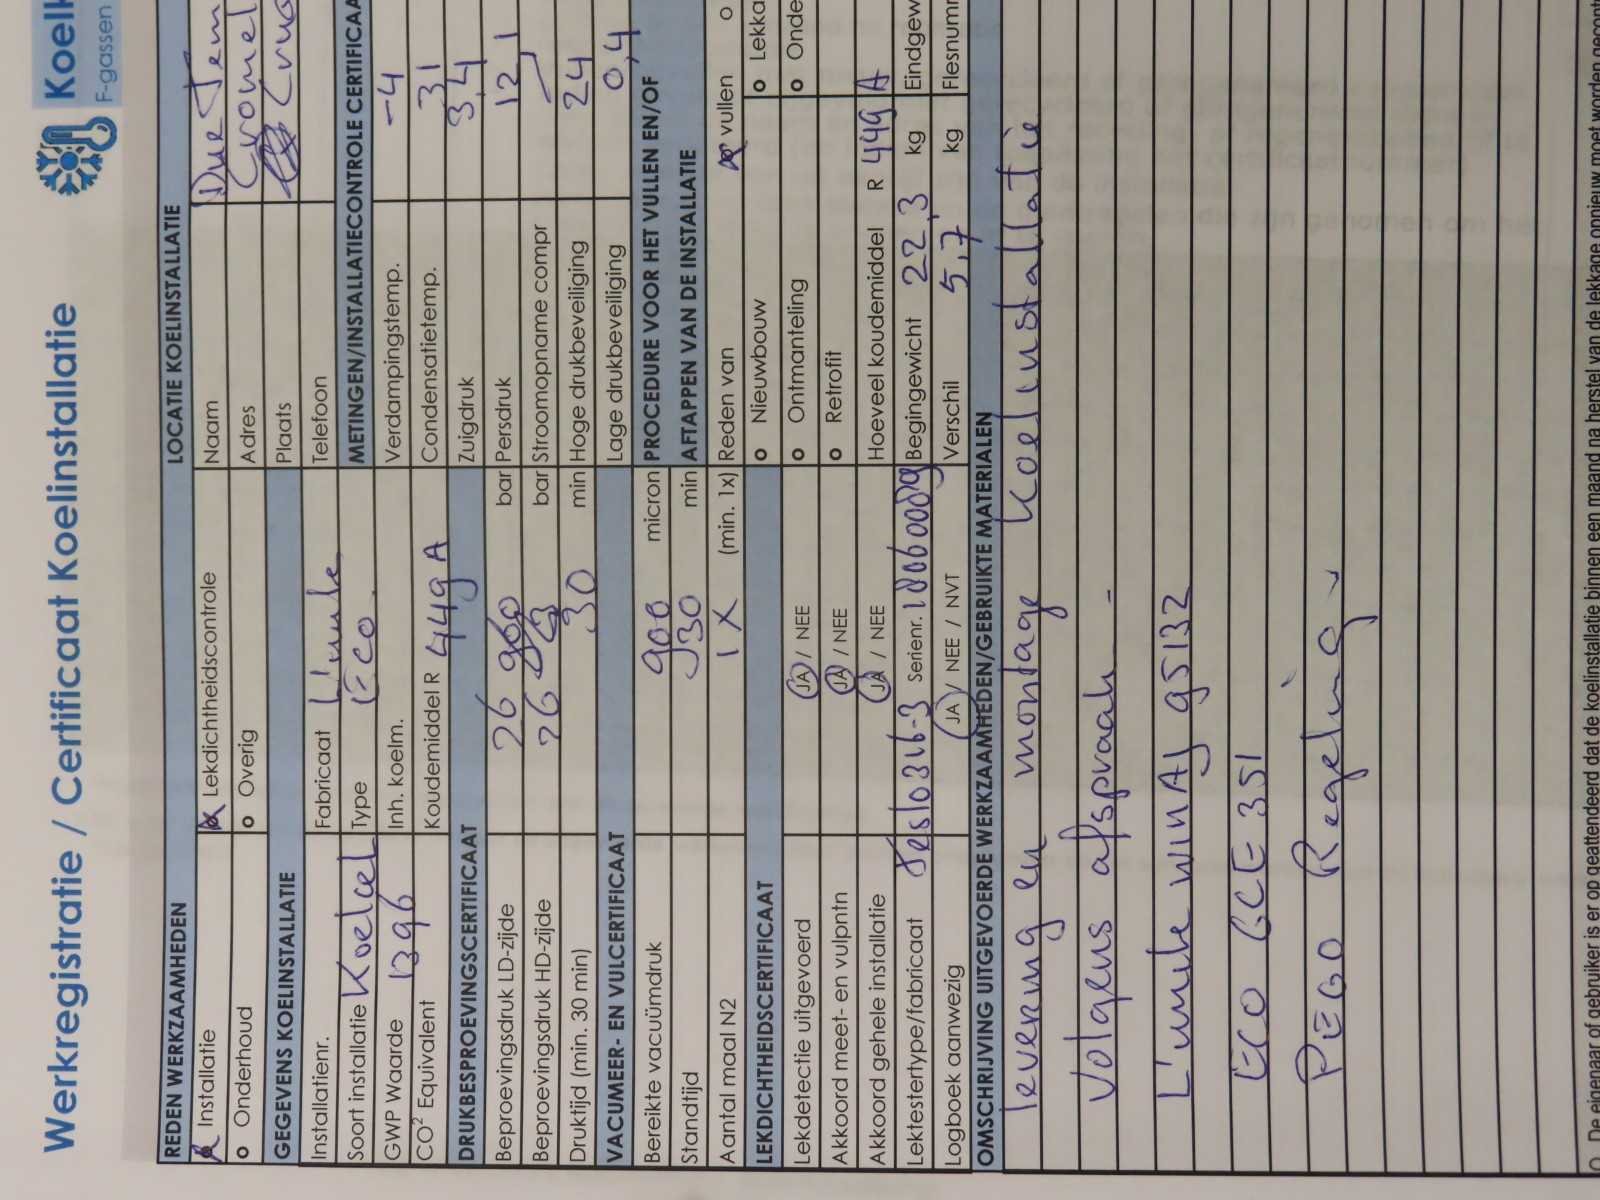 Werkregistratie / Certificaat Koelinstallatie
Koel
F-gassen
REDEN WERKZAAMHEDEN
Installatie
Lekdichtheidscontrole
Onderhoud
Overig
GEGEVENS KOELINSTALLATIE
Installatienr.
Fabricaat L'unite
Soort installatie Koelcel
Type ECO
GWP Waarde 1396
Inh. koelm.
CO2 Equivalent
Koudemiddel R 449A
DRUKBESPROEVINGSCERTIFICAAT
Beproevingsdruk LD-zijde 26 bar
Beproevingsdruk HD-zijde 26 bar
Druktijd (min. 30 min) 30 min
VACUMEER- EN VULCERTIFICAAT
Bereikte vacuümdruk 900 micron
Standtijd 30 min
Aantal maal N2 1 X (min. 1x)
LEKDICHTHEIDSCERTIFICAAT
Lekdetectie uitgevoerd JA / NEE
Akkoord meet- en vulpntn JA / NEE
Akkoord gehele installatie JA / NEE
Lektestertype/fabricaat Serienr.
Logboek aanwezig JA / NEE / NVT
LOCATIE KOELINSTALLATIE
Naam
Adres
Plaats
Telefoon
METINGEN/INSTALLATIECONTROLE CERTIFICAA
Verdampingstemp. -4
Condensatietemp. 31
Zuigdruk 3,4
Persdruk 12,1
Stroomopname compr
Hoge drukbeveiliging 24
Lage drukbeveiliging 0,4
PROCEDURE VOOR HET VULLEN EN/OF
AFTAPPEN VAN DE INSTALLATIE
Reden van vullen
Nieuwbouw
Lekka
Ontmanteling
Onde
Retrofit
Hoeveel koudemiddel R 449A
Begingewicht 22,3 kg Eindgew
Verschil 5,7 kg Flesnum
OMSCHRIJVING UITGEVOERDE WERKZAAMHEDEN/GEBRUIKTE MATERIALEN
levering en montage koelinstallatie
Volgens afspraak -
L'unite WINAJ 95132
ECO GCE 351
PEGO Regeling
De eigenaar of gebruiker is er op geattendeerd dat de koelinstallatie binnen een maand na herstel van de lekkage opnieuw moet worden gecont